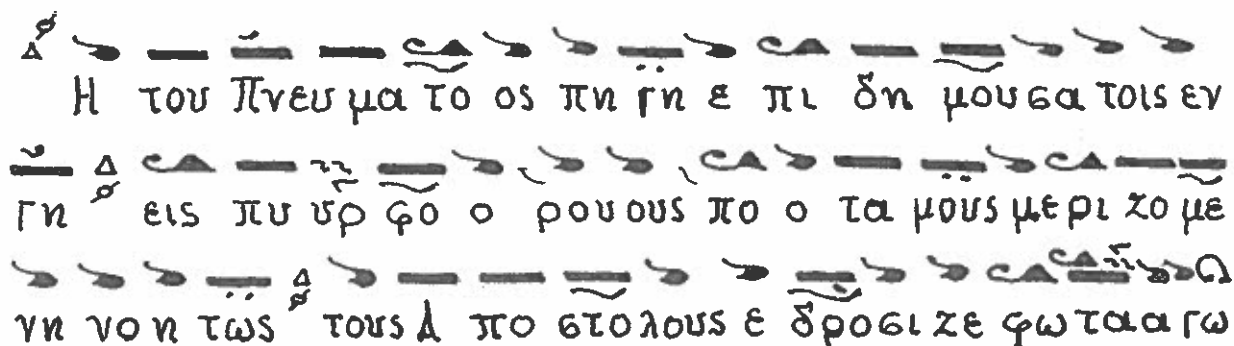 Η του Πνευ μα το ος πη γη ε πι δη μου σα τοις εν
γη εις πυ υρ φο ο ρου ους πο ο τα μους με ρι ζο με
νη νο η τως τους Α πο στο λους ε δρο σι ζε φω τα α γω